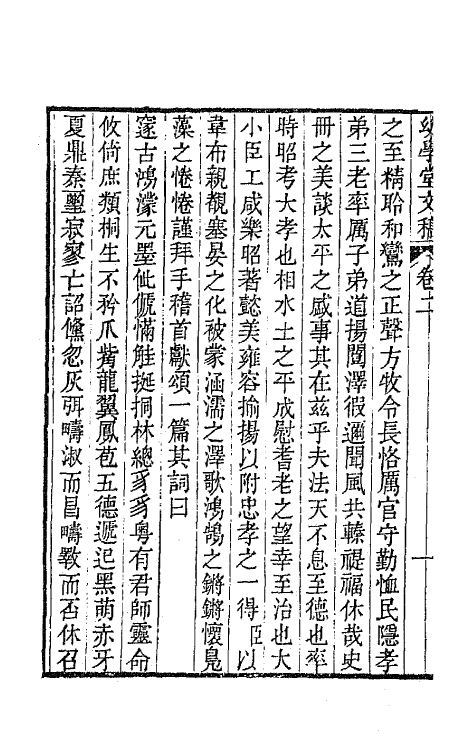 幼學堂文稿 卷二 一
之至精聆和鸞之正聲方牧令長恪厲官守勤恤民隱孝
弟三老率厲子弟道揚闓澤徦邇聞風共轃禔福休哉史
冊之美談太平之盛事其在茲乎夫法天不息至德也率
時昭考大孝也相水土之平成慰耆老之望幸至治也大
小臣工咸樂昭著懿美雍容揄揚以附忠孝之一得臣以
韋布親覩塞晏之化被蒙涵濡之澤歌鴻鵠之鏘鏘懷鳧
藻之惓惓謹拜手稽首獻頌一篇其詞曰
邃古鴻濛元墨佌傂 觟挻挏林總豸豸粵有君師靈命
攸倚庶類桐生不矜爪觜龍翼鳳苞五德遞迡黑萌赤牙
夏鼎秦璽寂寥亡詔儵忽灰弭疇淑而昌疇斁而否休召